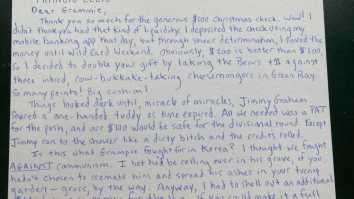 FRANCIS ELLIS
Dear Grammie,
Thank you so much for the generous $100 Christmas check. Wow! I
didn't think you had that kind of liquidity. I deposited the check using my
mobile banking app that day, but through sheer determination, I saved the
money until Wild Card Weekend. Obviously, $200 is better than $100,
so I decided to double your gift by taking the Bears +1½ against
three inbred, cow-bukkake-taking cheesemongers in Green Bay.
So many points! Big cushion!
Things looked dark until, miracle of miracles, Jimmy Graham
snared a one-handed tuddy as time expired. All we needed was a PAT
for the push, and our $100 would be safe for the divisional round. Except
Jimmy ran to the shower like a dirty bitch and the credits rolled.
Is this what Grampie fought for in Korea? I thought we fought
AGAINST communism. I bet he'd be rolling over in his grave, if you
hadn't chosen to cremate him and spread his ashes in your
garden — gross, by the way. Anyway, I had to shell out an additional
if you could make it a full